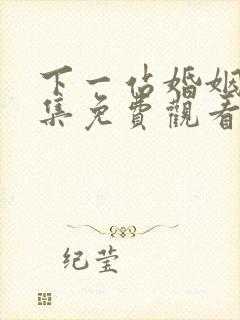 下一佔婚姻
集免費觀看
纪莹